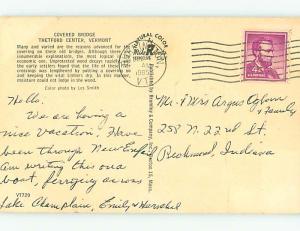 COVERED BRIDGE
THETFORD CENTER, VERMONT
Many and varied are the reasons advanced for the
covering on these old bridges. Although there are
innumerable explanations, the most logical is the
economic one. Unprotected wood decays rapidly and
early settlers found that the life of these
crossings was lengthened by putting a covering on
and keeping the vital timbers dry. As this manner,
moisture could not lodge in the wood.
Color photo by Les Smith
NATURAL COLOR
U.S. POSTAGE
Hello.
We are having a
nice vacation. Have
been through New England
Am writing this on a
boat, ferrying across
Lake Champlain, Emily & Herschel
V1729
Mr. & Mrs Argus Ogborn
& Family
258 N. 22rd St.
Richmond, Indiana